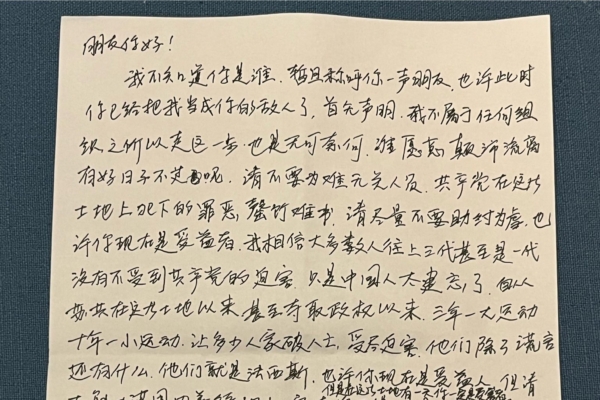 朋友你好！
我不知道你是谁，暂且称呼你一声朋友，也许此时
你已给把我当成你的敌人了，首先声明，我不属于任何组
织之所以走这一步，也是无可奈何，谁愿意颠沛流离
有好日子不过呢，请不要为难无关人员，共产党在这片
土地上犯下的罪恶，罄竹难书，请尽量不要助纣为虐，也
许你现在是受益者，我相信大多数人往上三代甚至是一代
没有不受到共产党的迫害，只是中国人太健忘了，自从
苏共在这片土地以来，甚至夺取政权以来，三年一大运动
十年一小运动，让多少人家破人亡，受尽迫害，他们除了谎言
还有什么，他们就是法西斯，也许你现在是受益人，但请